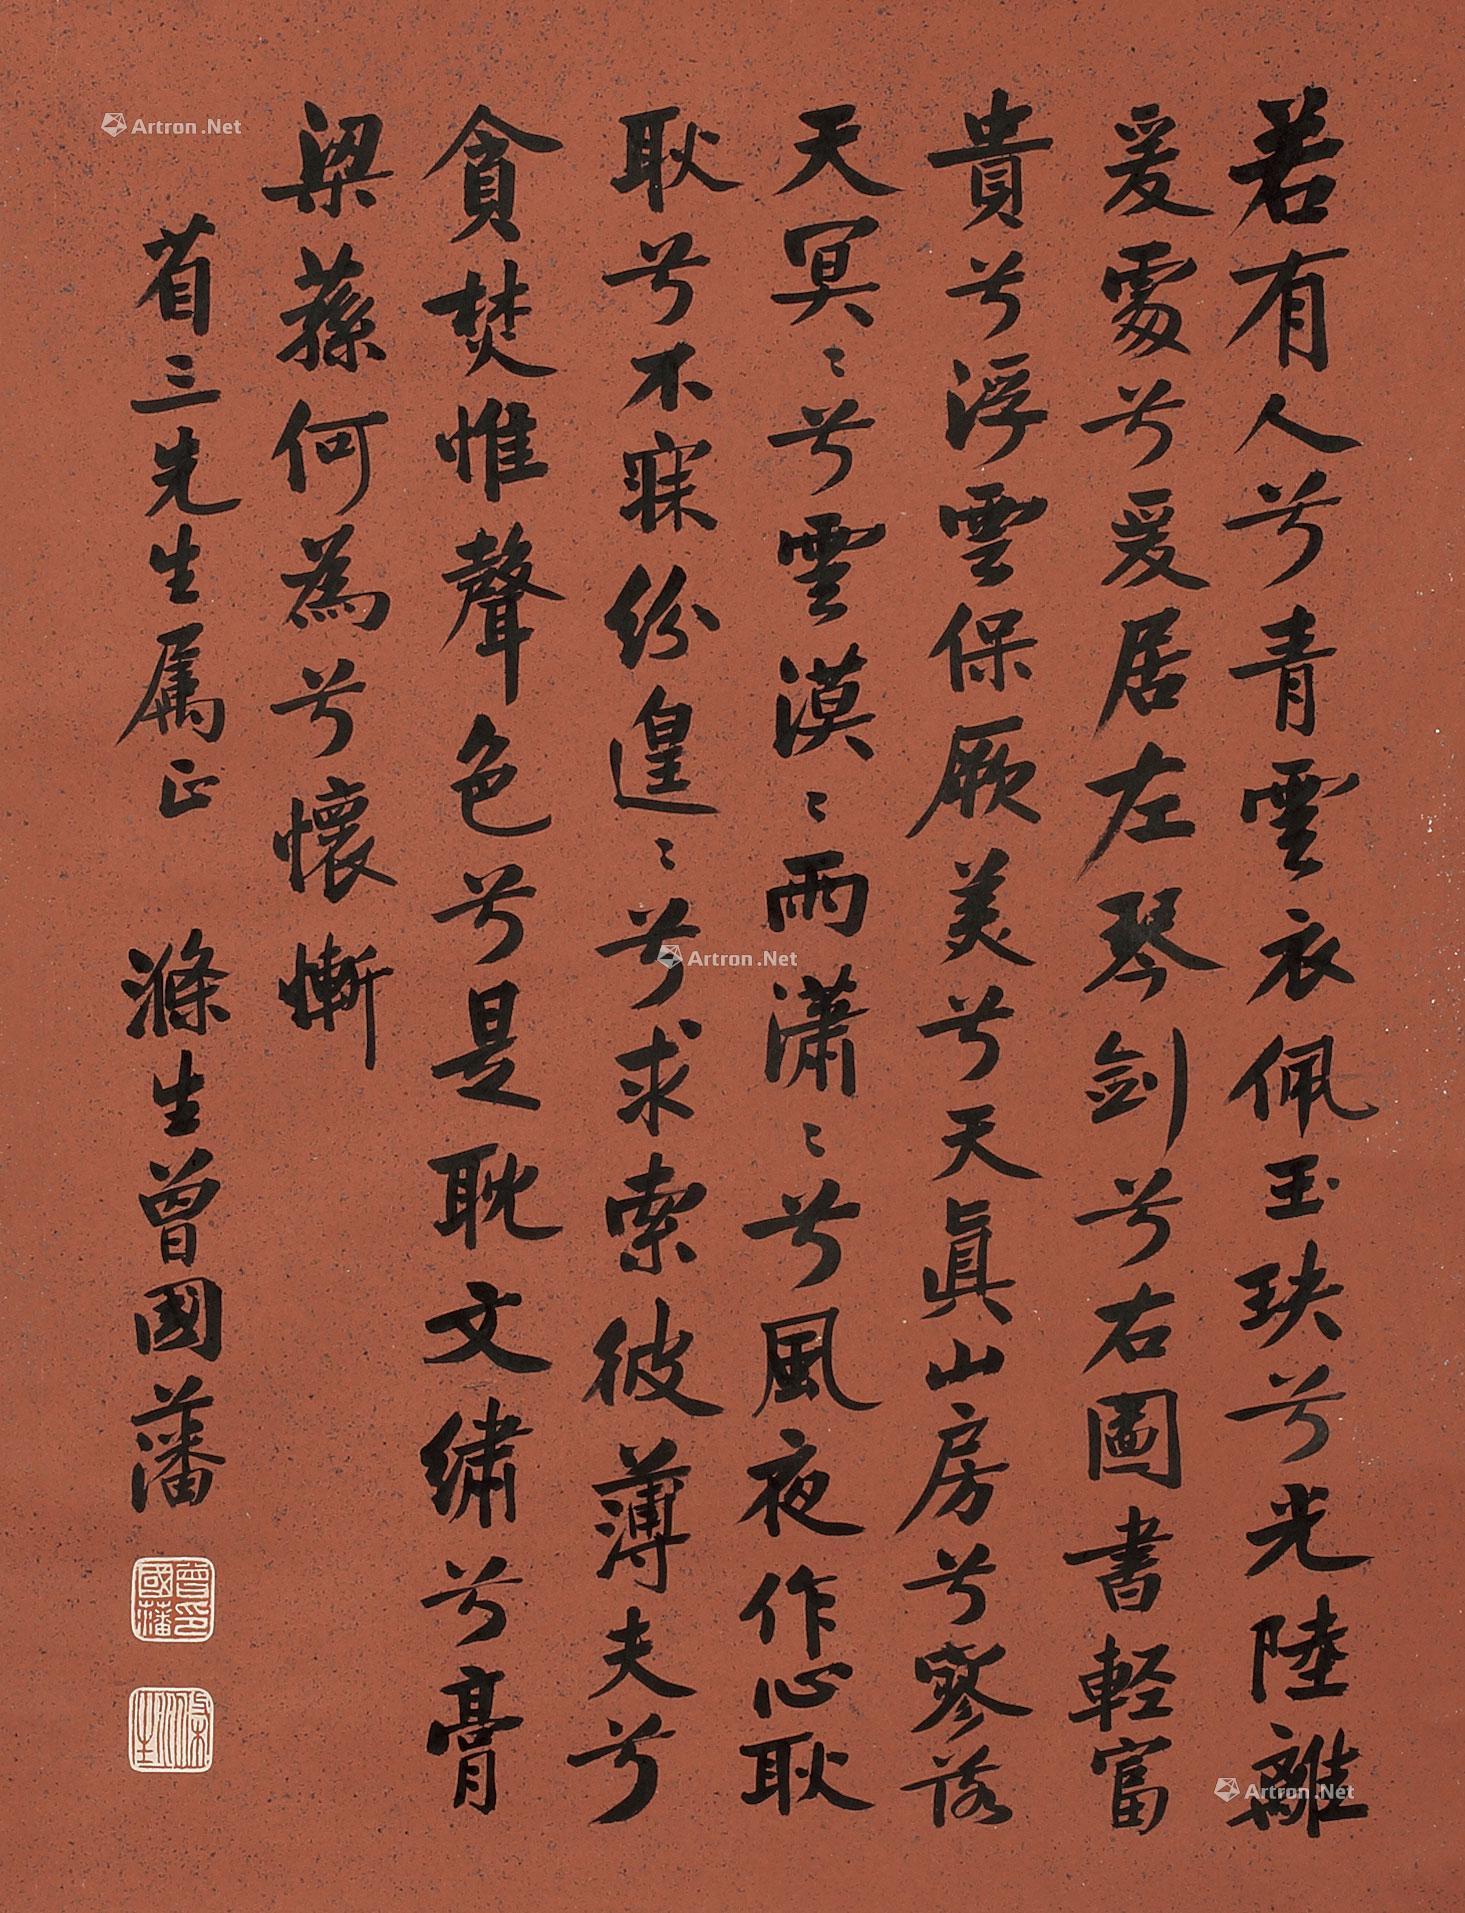 若有人兮青雲衣佩玉玦兮光陸離
爰處兮爰居左琴劍兮右圖書輕富
貴兮浮雲保厥美兮天真山房兮寥落
天冥〻兮雲漠〻雨潇〻兮風夜作心耿
耿兮不寐紛遑〻兮求索彼薄夫兮
貪婪惟聲色兮是耽文繡兮膏
梁蓀何為兮懷慚
省三先生属正
滌生曾國藩
曾國藩印
滌生
Artron.Net
Artron.Net
Artron.Net